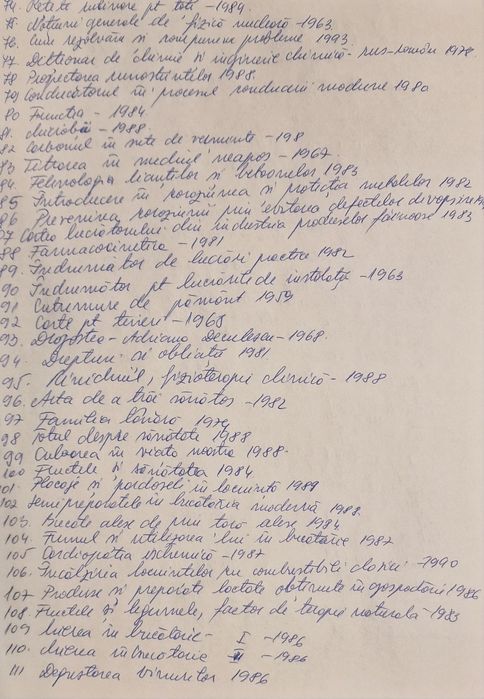 74. Rețete culinare pt toti - 1984.
75. Notiuni generale de fizică nucleară - 1963
76. Cum rezolvăm si compunem probleme 1993
77. Dictionar de chimie si inginerie chimică rus-român 1978.
78 Proiectarea cunostintelor 1988.
79 Conducătorul în procesul conducerii moderne 1980
80 Functia - 1984.
81. - 1988.
82 Carbonul în sute de vesminte - 198
83 Titrarea în mediul neapos - 1967.
84. Tehnologia liantilor si betoanelor 1983
85 Introducere în coroziunea si protectia metalelor 1982
86 Prevenirea coroziunii prin evitarea defectelor
87 Cartea lucrătorului din industria produselor făinoase 1983
88 Farmacocinetica - 1981
89. Îndrumător de lucrări practice 1982
90 Îndrumător pt lucrările de instalații - 1963
91 Cutremure de pământ 1959
92 Carte pt tineri - 1968
93. Dragostea - Adriana Deculescu - 1968.
94. Drepturi si obligații 1981
95. fizioterapie clinică - 1988
96. Arta de a trăi sănătos - 1982
97 Familia tânără 1974
98 totul despre sănătate 1988
99 Culoarea în viata noastră 1988.
100 Fructele si sănătatea 1984.
101. Placaje si pardoseli în locuintă 1989
102 Semipreparatele în bucătăria modernă 1988.
103. Bucate alese din tara alese 1984
104. Fumul si utilizarea lui în bucătărie 1987
105 Cardiopatia ischemică - 1987
106. Încălzirea locuintelor cu combustibili clasici - 1990
107 Produse si preparate lactate obtinute în gospodării 1986
108. Fructele si legumele, factor de terapie naturală - 1983
109 în bucătărie - I - 1986
110. în bucătărie II - 1986
111 Degustarea vinurilor 1986